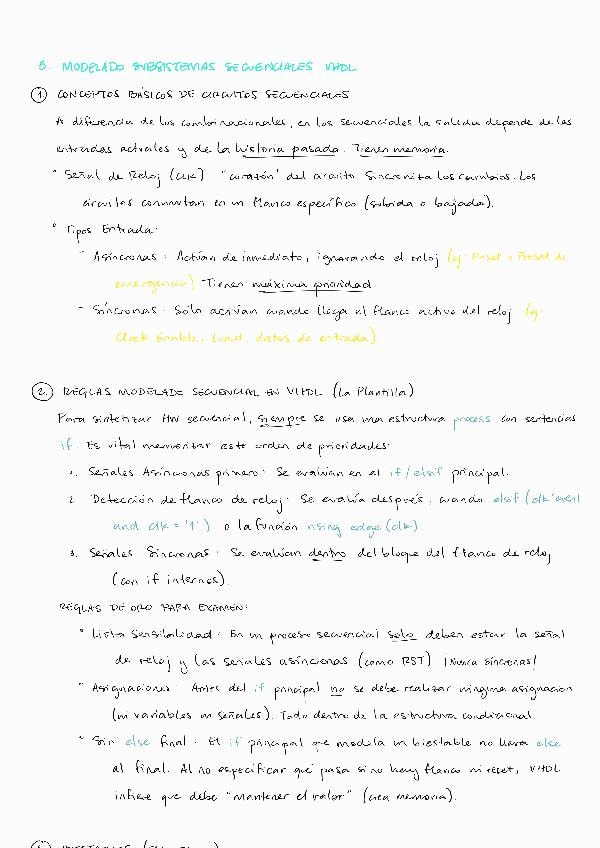 5. MODELADO SUBSISTEMAS SECUENCIALES VHDL
1. CONCEPTOS BÁSICOS DE CIRCUITOS SECUENCIALES
A diferencia de los combinacionales, en los secuenciales la salida depende de las
entradas actuales y de la historia pasada. Tienen memoria.
° Señal de Reloj (Clk) "corazón" del circuito. Sincroniza los cambios. Los
circuitos conmutan en un flanco específico (subida o bajada).
° Tipos Entrada:
- Asíncronas: Actúan de inmediato, ignorando el reloj (eg: Reset o Preset de
emergencia) -Tienen máxima prioridad.
- Síncronas: Sólo activan cuando llega el flanco activo del reloj (eg:
Clock Enable, Load, datos de entrada)
2. REGLAS MODELADO SECUENCIAL EN VHDL (La Plantilla)
Para sintetizar HW secuencial, siempre se usa una estructura process con sentencias
if. Es vital memorizar este orden de prioridades:
1. Señales Asíncronas primero: Se evalúan en el if/elsif principal.
2. Detección de flanco de reloj: Se evalúa después, usando elsif (clk'event
and clk = '1') o la función rising_edge(clk)
3. Señales Síncronas: Se evalúan dentro del bloque del flanco de reloj
(con if internos).
REGLAS DE ORO PARA EXAMEN:
° Lista Sensibilidad: En un proceso secuencial solo deben estar la señal
de reloj y las señales asíncronas (como RST) ¡Nunca síncronas!
° Asignaciones: Antes del if principal no se debe realizar ninguna asignación
(ni variables ni señales). Todo dentro de la estructura condicional.
° Sin else final: El if principal que modela un biestable no lleva else
al final. Al no especificar qué pasa si no hay flanco ni reset, VHDL
infiere que debe "mantener el valor" (crea memoria).